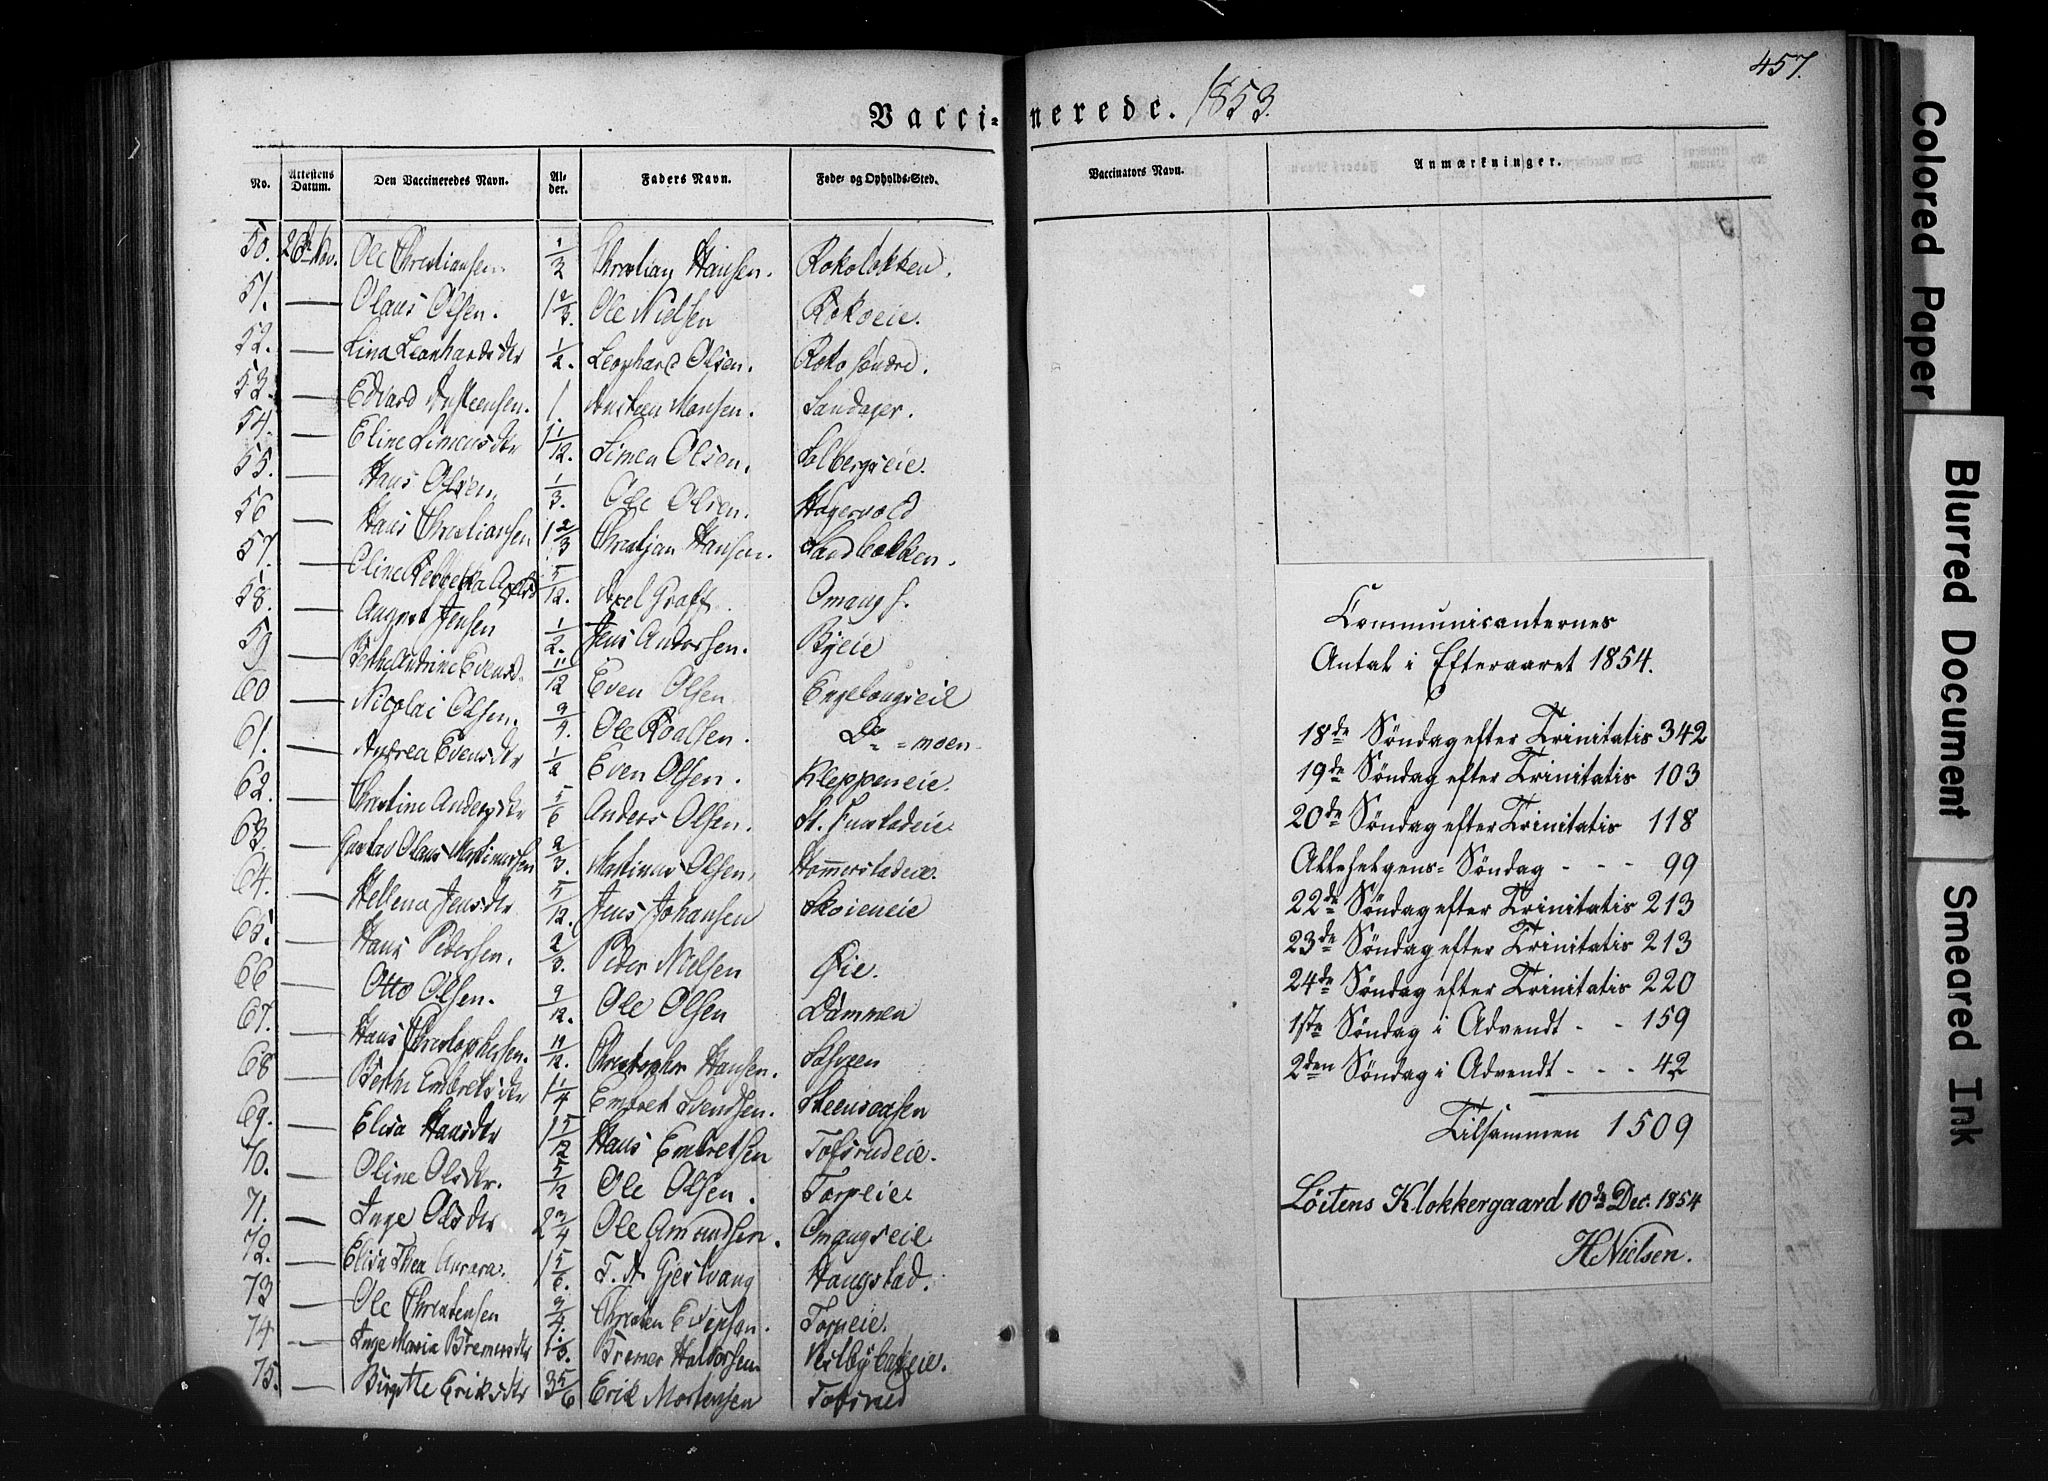 457.
Vaccinerede. 1853.
No. Attestens Datum. Den Vaccineredes Navn. Alder. Faders Navn. Føde- og Opholds-Sted. Vaccinators Navn. Anmærkninger.
50. 26de Nov. Ole Christiansen 1/2 Christian Hansen. Rokoløkken.
51. — Olaus Olsen. 1 2/3. Ole Nielsen Rokoeie.
52. — Lina Leonhardsdtr 1/2. Leonhard Olsen. Roko søndre.
53. — Edvard Austeensen. 1. Austeen Monsen. Sandager.
54. — Eline Simensdtr 1 1/12. Simen Olsen. Solbergseie.
55. — Hans Olsen 1/3. Ole Olsen. Hagervold
56 — Hans Christiansen 1 2/3 Christian Hansen. Sandbækken.
57. — Oline Rebekka 5/12. Axel Graff. Omang
58. — August Jensen 1/2. Jens Andersen. Byeie
59 — Berthe Andrine Evensd. 11/12 Even Olsen Engelaugseie
60 — Nicolai Olsen. 3/4. Ole Roalsen. Do = moen
61. — Andrea Evensdtr 1/2 Even Olsen. Kleppeneie.
62. — Christine Andersdtr 5/6 Anders Olsen. St. Finstadeie
63. — Gustav Olaus Martinussen 2/3. Martinus Olsen. Hommerstadeie.
64. — Hellena Jensdtr 5/12. Jens Johansen Skoieneie
65. — Hans Pedersen. 2/3. Peder Nielsen Øie.
66 — Otto Olsen. 9/12. Ole Olsen Dammen
67. — Hans Christophersen. 11/12. Christopher Hansen.
68 — Berthe Embretsdtr 1 1/4 Embret Svendsen. Steensaasen
69. — Elisa Hansdtr 1 5/12 Hans Embretsen Tofsrudeie.
70. — Oline Olsdtr. 5/12 Ole Olsen. Torpeie
71. — Inge Olsdtr 2 3/4 Ole Amundsen. Omangseie
72. — Elisa Thea Aurora. 1 5/6. T. A. Gjestvang Haugstad.
73 — Ole Christensen 3/4. Christen Evensen. Torpeie.
74 — Inge Maria Bremersdtr Bremer Halvorsen
75. — Birgitte Eriksdtr 3 5/6 Erik Mortensen Tofsrud
Communicanternes
Antal i Efteraaret 1854.
18de Søndag efter Trinitatis 342
19de Søndag efter Trinitatis 103
20de Søndag efter Trinitatis 118
Allehelgens= Søndag - - - 99
22de Søndag efter Trinitatis 213
23de Søndag efter Trinitatis 213
24de Søndag efter Trinitatis 220
1ste Søndag i Advendt - - 159
2den Søndag i Advendt - - - 42
Tilsammen 1509
Löitens Klokkergaard 10de Dec. 1854
HNielsen.
Colored Paper
Blurred Document
Smeared Ink